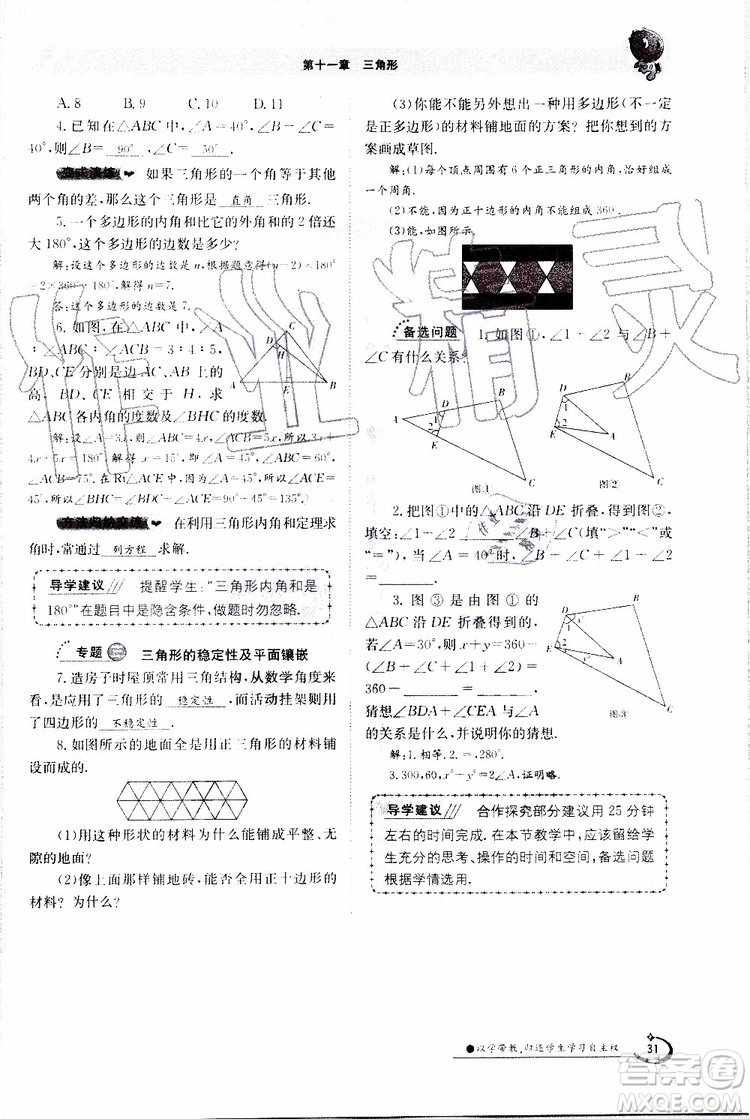 第十一章 三角形
A. 8 B. 9 C. 10 D. 11
4. 已知在△ABC中,∠A=40°,∠B-∠C=40°,则∠B= 90° ,∠C= 50° .
变式演练 如果三角形的一个角等于其他
两个角的差,那么这个三角形是 直角 三角形.
5. 一个多边形的内角和比它的外角和的2倍还
大180°,这个多边形的边数是多少?
解:设这个多边形的边数是n,根据题意得(n-2)×180°
=2×360°+180°,解得n=7.
答:这个多边形的边数是7.
6. 如图,在△ABC中,∠A:
∠ABC:∠ACB=3:4:5,
BD,CE分别是边AC,AB上的
高,BD,CE相交于H,求
△ABC各内角的度数及∠BHC的度数.
C
D
H
A
E
B
解:设∠A=3x,则∠ABC=4x,∠ACB=5x,所以3x
+4x+5x=180°.解得x=15°,所以∠A=45°,∠ABC=60°,
∠ACB=75°.在Rt△ACE中,∠ACE=90°-∠A=90°-
45°=45°,所以∠BHC=∠BDC+∠ACE=135°.
方法归纳总结 在利用三角形内角和定理求
角时,常通过 列方程 求解.
导学建议 提醒学生:“三角形内角和是
180°”在题目中是隐含条件,做题时勿忽略.
专题二 三角形的稳定性及平面镶嵌
7. 造房子时屋顶常用三角结构,从数学角度来
看,是应用了三角形的 稳定性 ,而活动挂架则用
了四边形的 不稳定性 .
8. 如图所示的地面全是用正三角形的材料铺
设而成的.
(1)用这种形状的材料为什么能铺成平整、无
隙的地面?
(2)像上面那样铺地砖,能否全用正十边形的
材料?为什么?
(3)你能不能另外想出一种用多边形(不一定
是正多边形)的材料铺地面的方案?把你想到的方
案画成草图.
解:(1)每个顶点周围有6个正三角形的内角,恰好组成
一个周角.
(2)不能,因为正十边形的内角不能组成360°.
(3)能,如图所示.
备选问题 1. 如图①,∠1+∠2与∠B+
∠C有什么关系?
A
B
C
D
E
1
2
图①
A
B
C
D
E
1
2
图②
2. 把图①中的△ABC沿DE折叠,得到图②,
填空:∠1+∠2 ∠B+∠C(填“>”“<”或
“=”),当∠A=40°时,∠B+∠C+∠1+∠2=
3. 图③是由图①的
△ABC沿DE折叠得到的,
如果∠A=30°,则x+y=360°
-(∠B+∠C+∠1+∠2)=
360°- = ,
猜想∠BDA+∠CEA与∠A
的关系是什么,并说明你的猜想.
B
C
D
E
A
1
2
x
图③
解:1.相等. 2.=,280°.
3.300,60,x°+y°=2∠A,证明略.
导学建议 合作探究部分建议用25分钟
左右的时间完成.在本节教学中,应该留给学
生充分的思考、操作的时间和空间,备选问题
根据学情选用.
●以学带教,归还学生学习自主权
31
作业精灵
答案圈
MXQE.COM